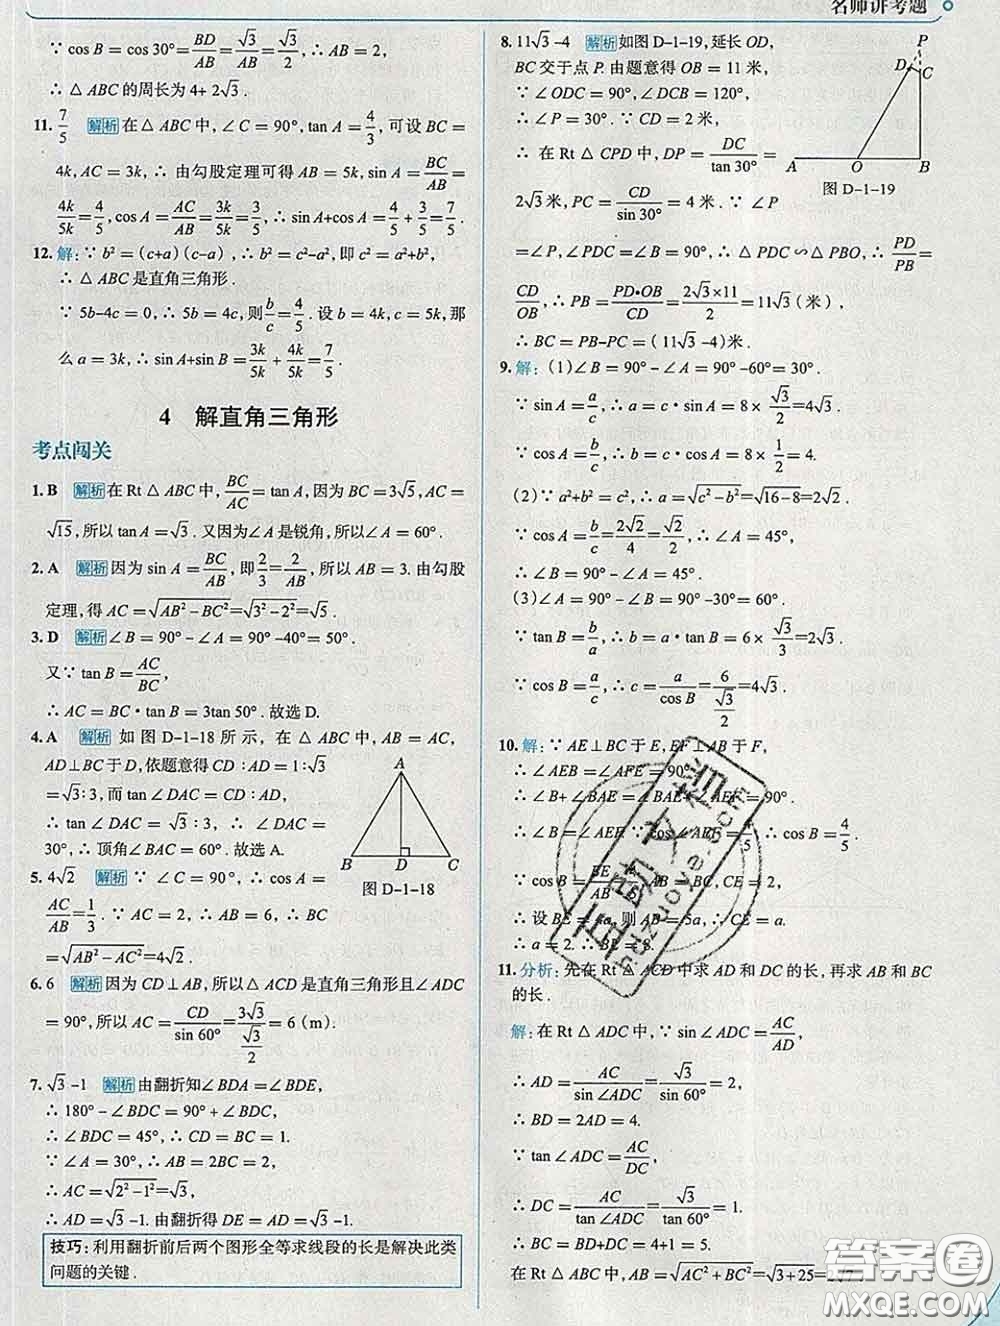 名师讲考题
∵ cos B = cos 30° = BD/AB = √3/AB = √3/2,
∴ △ABC的周长为 4+2√3.
11. 7/5 解析 在△ABC中,∠C=90°,tan A=4/3,可设BC=
4k,AC=3k,∴由勾股定理可得AB=5k,sin A=BC/AB=
4k/5k=4/5,cos A=AC/AB=3k/5k=3/5,∴sin A+cos A=4/5+3/5=7/5.
12. 解:∵b²=(c+a)(c-a),∴b²=c²-a²,即c²=a²+b²,
∴△ABC是直角三角形.
∵5b-4c=0,∴5b=4c,则b/c=4/5.设b=4k,c=5k,那
么a=3k,∴sin A+sin B=3k/5k+4k/5k=7/5.
4 解直角三角形
考点闯关
1. B 解析 在Rt△ABC中,BC/AC=tan A,因为BC=3√5,AC=
√15,所以tan A=√3.又因为∠A是锐角,所以∠A=60°.
2. A 解析 因为sin A=BC/AB,即2/3=2/AB,所以AB=3.由勾股
定理,得AC=√(AB²-BC²)=√(3²-2²)=√5.
3. D 解析 ∠B=90°-∠A=90°-40°=50°.
又∵tan B=AC/BC,
∴AC=BC·tan B=3tan 50°.故选D.
4. A 解析 如图D-1-18所示,在△ABC中,AB=AC,
AD⊥BC于D,依题意得CD∶AD=1∶√3
=√3∶3,而tan∠DAC=CD∶AD,
∴tan∠DAC=√3∶3,∴∠DAC=
30°,∴顶角∠BAC=60°.故选A.
A
B D C
图D-1-18
5. 4√2 解析 ∵∠C=90°,∴cos A=
AC/AB=1/3.∵AC=2,∴AB=6,∴BC
=√(AB²-AC²)=4√2.
6. 6 解析 因为CD⊥AB,所以△ACD是直角三角形且∠ADC
=90°,所以AC=CD/sin 60°=3√3/(√3/2)=6(m).
7. √3-1 解析 由翻折知∠BDA=∠BDE,
∴180°-∠BDC=90°+∠BDC,
∴∠BDC=45°,∴CD=BC=1.
∵∠A=30°,∴AB=2BC=2,
∴AC=√(2²-1²)=√3,
∴AD=√3-1.由翻折得DE=AD=√3-1.
技巧:利用翻折前后两个图形全等求线段的长是解决此类
问题的关键.
8. 11√3-4 解析 如图D-1-19,延长OD,
BC交于点P.由题意得OB=11米,
∵∠ODC=90°,∠DCB=120°,
∴∠P=30°.∵CD=2米,
∴在Rt△CPD中,DP=DC/tan 30°=
2√3米,PC=CD/sin 30°=4米.∵∠P
P
D C
A O B
图D-1-19
=∠P,∠PDC=∠B=90°,∴△PDC∽△PBO,∴PD/PB=
CD/OB,∴PB=PD·OB/CD=2√3×11/2=11√3(米),
∴BC=PB-PC=(11√3-4)米.
9. 解:(1)∠B=90°-∠A=90°-60°=30°.
∵sin A=a/c,∴a=c·sin A=8×√3/2=4√3.
∵cos A=b/c,∴b=c·cos A=8×1/2=4.
(2)∵a²+b²=c²,∴a=√(c²-b²)=√(16-8)=2√2.
∵cos A=b/c=2√2/4=√2/2,∴∠A=45°,
∴∠B=90°-∠A=45°.
(3)∠A=90°-∠B=90°-30°=60°.
∵tan B=b/a,∴b=a·tan B=6×√3/3=2√3.
∵cos B=a/c,∴c=a/cos B=6/(√3/2)=4√3.
10. 解:∵AE⊥BC于E,EF⊥AB于F,
∴∠AEB=∠AFE=90°,
∴∠B+∠BAE=∠BAE+∠AEF=90°.
∴∠B=∠AEF.∵cos∠AEF=4/5,∴cos B=4/5.
∵cos B=BE/AB,AB=BC,CE=2,
∴设BE=4a,则AB=5a,∴CE=a.
∴a=2.∴BE=8.
11. 分析:先在Rt△ACD中求AD和DC的长,再求AB和BC
的长.
解:在Rt△ADC中,∵sin∠ADC=AC/AD,
∴AD=AC/sin∠ADC=√3/sin 60°=2,
∴BD=2AD=4.
∵tan∠ADC=AC/DC,
∴DC=AC/tan∠ADC=√3/tan 60°=1.
∴BC=BD+DC=4+1=5.
在Rt△ABC中,AB=√(AC²+BC²)=√(3+25)=2√7.
互助文档
huzuoye.com
答案圈
MXQE.COM